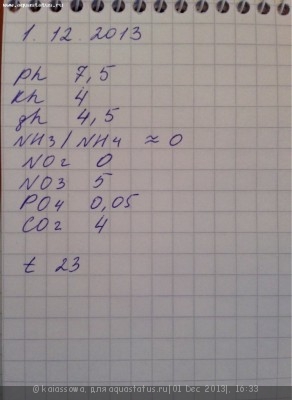 www.aquastatus.ru
1. 12. 2013
ph 7,5
Kh 4
gh 4,5
NH3/NH4 ≈ 0
NO2 0
NO3 5
PO4 0,05
CO2 4
t 23
© kolassowa, для aquastatus.ru| 01 Dec 2013|, 16:33